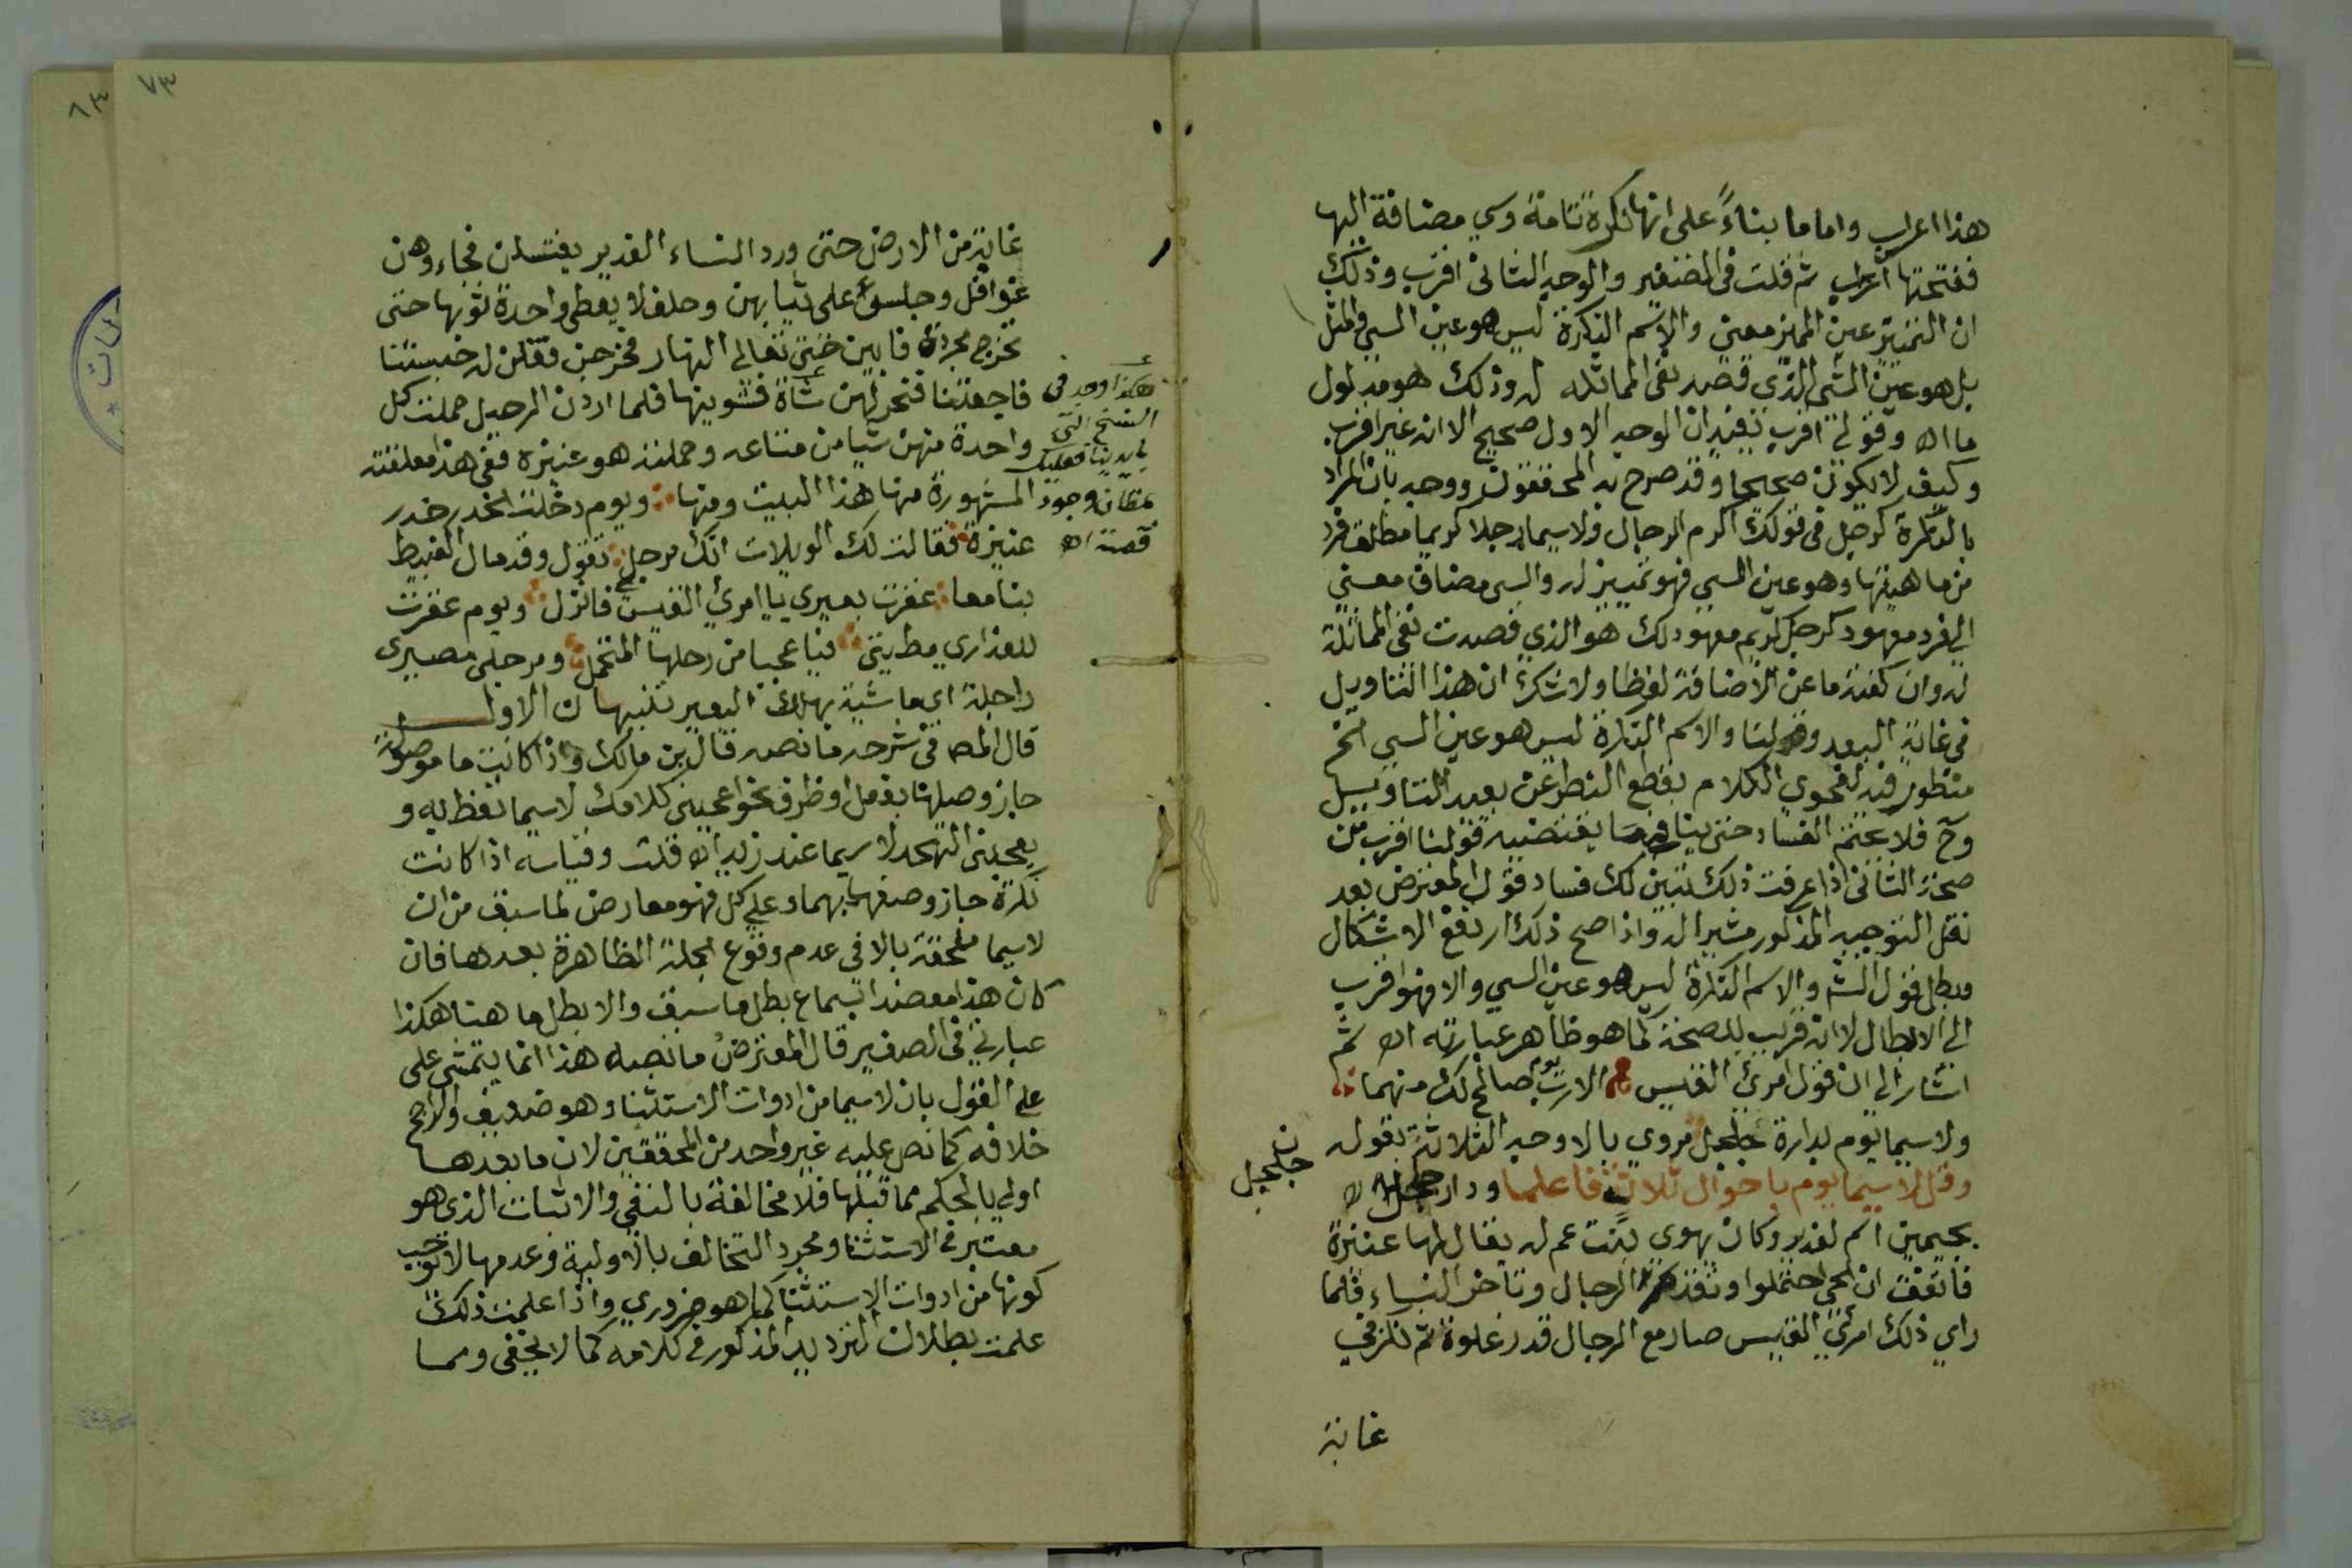 هذا اعراب واما ما بناءً على انها نكرة تامة وسي مضافة اليها
ففتحتها اعراب ثم قلت في الصغير والوجه الثاني اقرب وذلك
ان التمييز عين المميز معنى والاسم النكرة ليس هو عين السي والمثل
بل هو عين الشي الذي قصد نفي المماثله له وذلك هو مدلول
ما اه وقولي اقرب تفيد ان الوجه الاول صحيح الا انه غير اقرب
وكيف لا يكون صحيحا وقد صرح به المحققون ووجه بان المراد
بالنكرة كرجل في قولك اكرم الرجال ولا سيما رجلا كريما مطلق فرد
من ماهيتها وهو عين السي فهو تمييز له والسي مضاف معنى
الي فرد معهود كرجل كريم معهود لك هو الذي قصدت نفي المماثلة
له وان كفته ما عن الاضافة لفظا ولا شك ان هذا التاويل
في غاية البعد وقولنا والاسم النكرة ليس هو عين السي الخ
منظور فيه لفحوي الكلام بقطع النظر عن بعد التاويل
وح فلا يحتم الفساد حتى ينافي ما يقتضيه قولنا اقرب من
صحة الثاني اذا عرفت ذلك تبين لك فساد قول المعترض بعد
نقل التوجيه المذكور مشيرا له واذا صح ذلك ارتفع الاشكال
وبطل قول الشـ والاسم النكرة ليس هو عين السي والا فهو اقرب
الي الابطال لا انه قريب للصحة كما هو ظاهر عبارته اه ثم
اشار الي ان قول امرئ القيس الا رب يوم صالح لك منهما
ولا سيما يوم بدارة جلجل مروي بالاوجه الثلاثة بقوله
وقل لا سيما يوم باحوال ثلاث فاعلما ودار جلجل
بجيمين اسم لغدير وكان يهوي بنت عم له يقال لها عنيزة
فاتفق ان الحي احتملوا وتقدم الرجال وتاخر النساء فلما
راي ذلك امرئ القيس صار مع الرجال قدر غلوة ثم نزل في
جلجل
غاية
٧٣
غاية من الارض حتى ورد النساء الغدير يغتسلن فجاء وهن
غوافل وجلس على ثيابهن وحلف لا يعطي واحدة ثوبها حتى
تخرج مجردة فابين حتى تعالي النهار فخرجن فقلن له حبستنا
فاجعتنا فنحر لهن شاة فشوينها فلما اردن الرحيل حملت كل
واحدة منهن شيا من متاعه وحملته هو عنيزة ففي هذا معلقته
المشهورة منها هذا البيت ومنها ويوم دخلت الخدر خدر
عنيزة فقالت لك الويلات انك مرجل تقول وقد مال الغبيط
بنا معا عقرت بعيري يا امرئ القيس فانزل ويوم عقرت
للعذاري مطيتي فيا عجبا من رحلها المتحمل ومرجلي مصيري
راجلة اي ماشية بهلاك البعير تنبيهان الاول
قال المصـ في شرحه ما نصه قال ابن مالك واذا كانت ما موصولة
جاز وصلها بفعل او ظرف نحو اعجبني كلامك لا سيما تعظ به و
يعجبني التهجد لا سيما عند زيد اه قلت وقياسه اذا كانت
نكرة جاز وصفها بهما وعلي كل فهو معارض لما سبق من ان
لا سيما ملحقة بالا في عدم وقوع الجملة الظاهرة بعدها فان
كان هذا معضدا بسماع بطل ما سبق والا بطل ما هنا هكذا
عبارتي في الصغير قال المعترض ما نصه هذا انما يتمشى على
علي القول بان لا سيما من ادوات الاستثناء وهو ضعيف والراجح
خلافه كما نص عليه غير واحد من المحققين لان ما بعدها
اولي بالحكم مما قبلها فلا مخالفة بالنفي والاثبات الذي هو
معتبر في الاستثنا ومجرد التخالف بالاولية وعدمها لا توجب
كونها من ادوات الاستثنا كما هو ضروري واذا علمت ذلك
علمت بطلان الترديد المذكور في كلامه كما لا يخفى ومما
هكذا وجد في
النسخ التي
بايدينا فعليك
بمظان وجود
قصته اه
٨٣